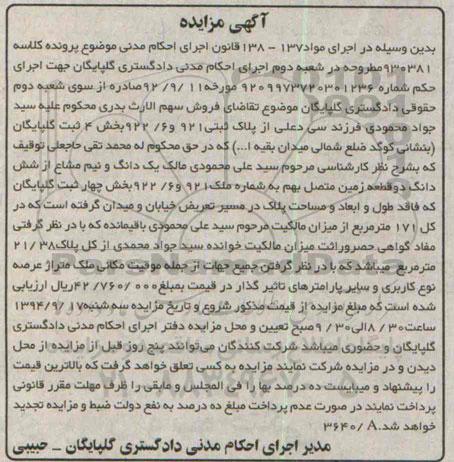 آگهی مزایده
بدین وسیله در اجرای مواد۱۳۷ - ۱۳۸ قانون اجرای احکام مدنی موضوع پرونده کلاسه
۹۳۰۳۸۱مطروحه در شعبه دوم اجرای احکام مدنی دادگستری گلپایگان جهت اجرای
حکم شماره ۹۲۰۹۹۷۳۷۲۰۳۰۱۲۳۶ مورخه۱۱ /۹/ ۹۲صادره از سوی شعبه دوم
حقوقی دادگستری گلپایگان موضوع تقاضای فروش سهم الارث بدری محکوم علیه سید
جواد محمودی فرزند سی دعلی از پلاک ثبتی۹۲۱ و۶/ ۹۲۲بخش ۴ ثبت گلپایگان
(بنشانی کوگد ضلع شمالی میدان بقیه ا...) که در حق محکوم له محمد تقی حاجعلی توقیف
که بشرح نظر کارشناسی مرحوم سید علی محمودی مالک یک دانگ و نیم مشاع از شش
دانگ دوقطعه زمین متصل بهم به شماره ملک۹۲۱ و۶/ ۹۲۲بخش چهار ثبت گلپایگان
که فاقد طول و ابعاد و مساحت پلاک در مسیر تعریض خیابان و میدان گرفته است که در
کل ۱۷۱ مترمربع از میزان مالکیت مرحوم سید علی محمودی باقیمانده که با در نظر گرفتی
مفاد گواهی حصروراثت میزان مالکیت خوانده سید جواد محمدی از کل پلاک۲۱/۳۸
مترمربع میباشد که با در نظر گرفتن جمیع جهات از جمله موقعیت مکانی ملک متراژ عرصه
نوع کاربری و سایر پارامترهای تاثیر گذار در قیمت بمبلغ۰۰۰ /۷۶۰ /۴۲ریال ارزیابی
شده است که مبلغ مزایده از قیمت مذکور شروع و تاریخ مزایده سه شنبه۱۷ /۱۳۹۴/۹
ساعت۳۰ /۸الی۳۰ /۹صبح تعیین و محل مزایده دفتر اجرای احکام مدنی دادگستری
گلپایگان و حضوری میباشد شرکت کنندگان می‌توانند پنج روز قبل از مزایده از محل
دیدن و در مزایده شرکت نمایند مزایده به کسی تعلق خواهد گرفت که بالاترین قیمت
را پیشنهاد و میبایست ده درصد بها را فی المجلس و مابقی را ظرف مهلت مقرر قانونی
پرداخت نمایند در صورت عدم پرداخت مبلغ ده درصد به نفع دولت ضبط و مزایده تجدید
خواهد شد.۳۶۴۰/ A
مدیر اجرای احکام مدنی دادگستری گلپایگان _ حبیبی